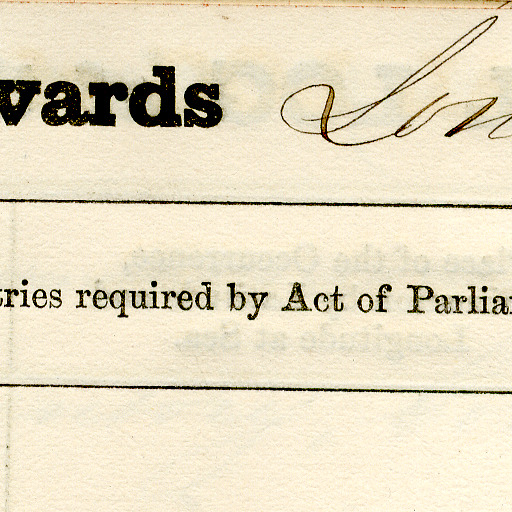 wards Lon
tries required by Act of Parlia